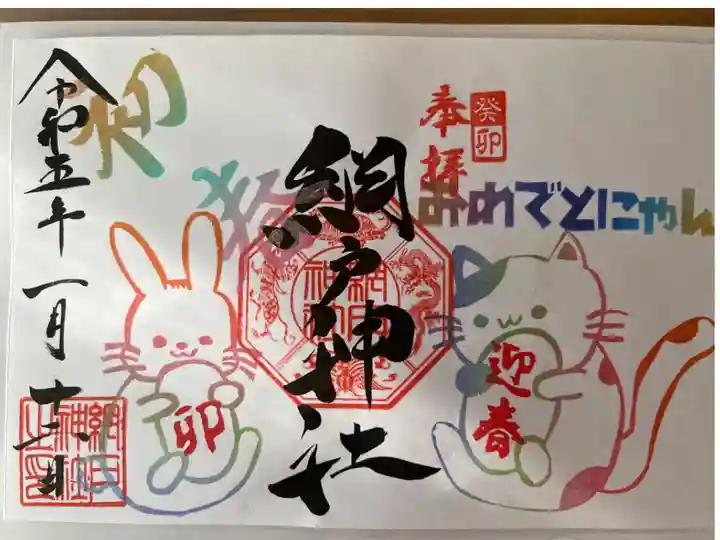 癸卯
奉拝
おめでとにゃん
迎春
網戸神社
網戸神社
初
卯
令和五年一月十三日
網戸神社之印